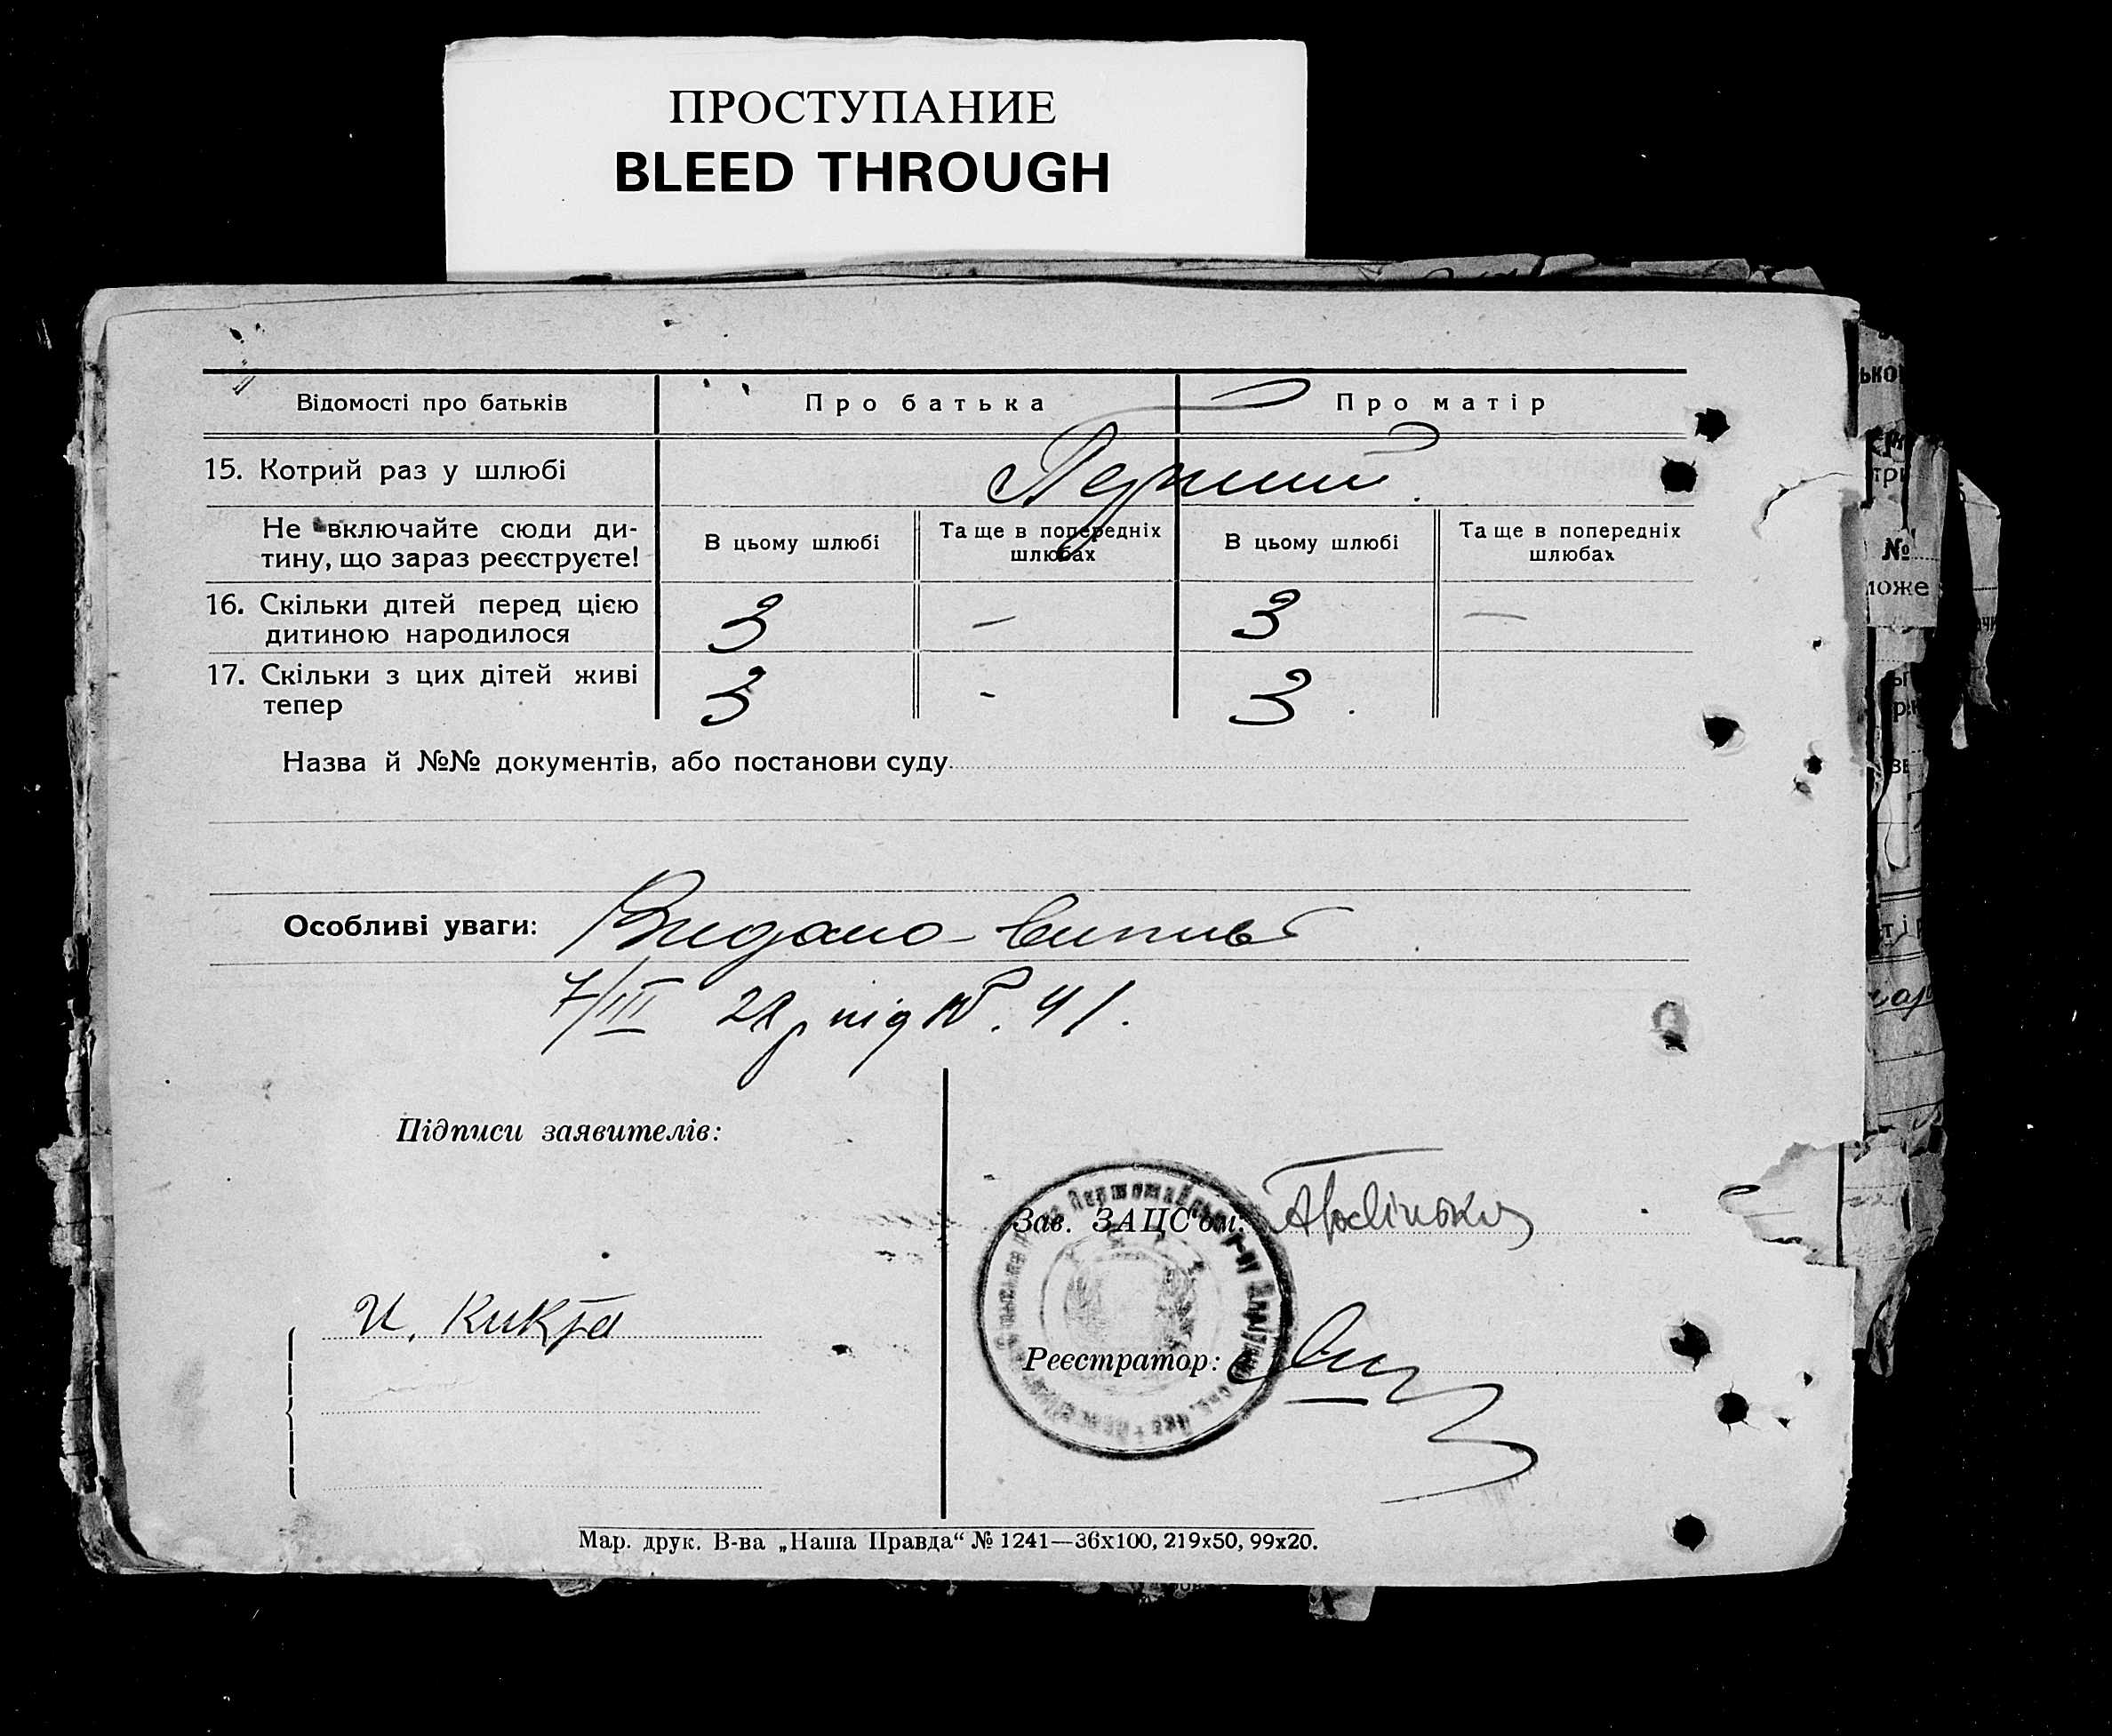 ПРОСТУПАНИЕ
BLEED THROUGH
Відомості про батьків
Про батька
Про матір
15. Котрий раз у шлюбі
Перший
Не включайте сюди ди-
тину, що зараз реєструєте!
В цьому шлюбі
Та ще в попередніх
шлюбах
В цьому шлюбі
Та ще в попередніх
шлюбах
16. Скільки дітей перед цією
дитиною народилося
3
—
3
—
17. Скільки з цих дітей живі
тепер
3
-
3.
Назва й №№ документів, або постанови суду
Особливі уваги: Видано випис
7/III 28 р під №. 41.
Підписи заявителів:
Зав. ЗАЦС'ом:
И. Кикта
Реєстратор:
Мар. друк. В-ва „Наша Правда“ № 1241—36х100, 219х50, 99х20.
№
може